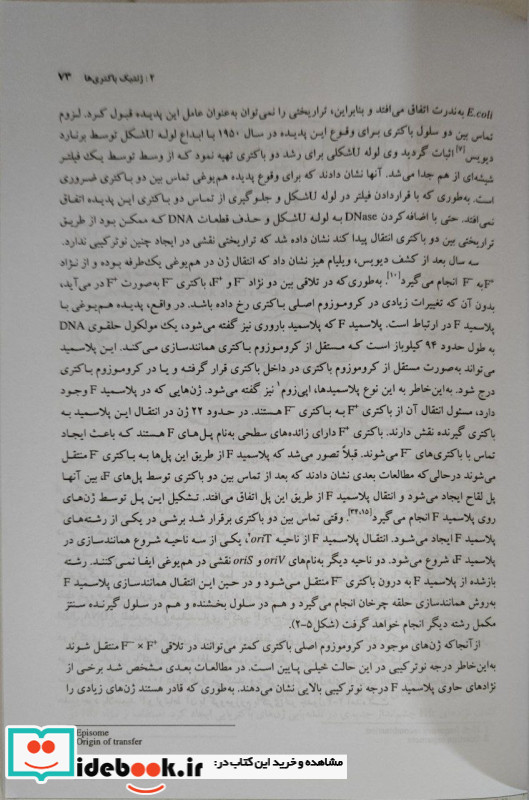 ۲: ژنتیک باکتری‌ها ۷۳
E.coli به‌ندرت اتفاق می‌افتد و بنابراین، تراریختی را نمی‌توان به‌عنوان عامل این پدیده قبول کرد. لزوم
تماس بین دو سلول باکتری برای وقوع این پدیده در سال ۱۹۵۰ با ابداع لوله Uشکل توسط برنارد
دیویس[۷] اثبات گردید وی لوله Uشکلی برای رشد دو باکتری تهیه نمود که از وسط توسط یک فیلتر
شیشه‌ای از هم جدا می‌شد. آنها نشان دادند که برای وقوع پدیده هم‌یوغی تماس بین دو باکتری ضروری
است. به‌طوری که با قراردادن فیلتر در لوله Uشکل و جلوگیری از تماس دو باکتری این پدیده اتفاق
نمی‌افتد. حتی با اضافه کردن DNase به لوله Uشکل و حذف قطعات DNA که ممکن بود از طریق
تراریختی بین دو باکتری انتقال پیدا کند نشان داده شد که تراریختی نقشی در ایجاد چنین نوترکیبی ندارد.
سه سال بعد از کشف دیویس، ویلیام هیز نشان داد که انتقال ژن در هم‌یوغی یک‌طرفه بوده و از نژاد
F⁺ به F⁻ انجام می‌گیرد[۱۰]. به‌طوری‌که در تلاقی بین دو نژاد F⁻ و F⁺، باکتری F⁻ به‌صورت F⁺ در می‌آید،
بدون آن که تغییرات زیادی در کروموزوم اصلی باکتری رخ داده باشد. در واقع، پدیده هم‌یوغی با
پلاسمید F در ارتباط است. پلاسمید F که پلاسمید باروری نیز گفته می‌شود، یک مولکول حلقوی DNA
به طول حدود ۹۴ کیلوباز است که مستقل از کروموزوم باکتری همانندسازی می‌کند. این پلاسمید
می‌تواند به‌صورت مستقل از کروموزوم باکتری در داخل باکتری قرار گرفته و یا در کروموزوم باکتری
درج شود. به‌این‌خاطر به این نوع پلاسمیدها، اپی‌زوم۱ نیز گفته می‌شود. ژن‌هایی که در پلاسمید F وجود
دارد، مسئول انتقال آن از باکتری F⁺ به باکتری F⁻ هستند. در حدود ۲۲ ژن در انتقال این پلاسمید به
باکتری گیرنده نقش دارند. باکتری F⁺ دارای زائده‌های سطحی به‌نام پل‌های F هستند که باعث ایجاد
تماس با باکتری‌های F⁻ می‌شوند. قبلاً تصور می‌شد که پلاسمید F از طریق این پل‌ها به باکتری F⁻ منتقل
می‌شوند درحالی‌که مطالعات بعدی نشان دادند که بعد از تماس بین دو باکتری توسط پل‌های F، بین آنها
پل لقاح ایجاد می‌شود و انتقال پلاسمید F از طریق این پل اتفاق می‌افتد. تشکیل این پل توسط ژن‌های
روی پلاسمید F انجام می‌گیرد[۳۴،۱۵]. وقتی تماس بین دو باکتری برقرار شد برشی در یکی از رشته‌های
پلاسمید F ایجاد می‌شود. انتقال پلاسمید F از ناحیه oriT۲، یکی از سه ناحیه شروع همانندسازی در
پلاسمید F، شروع می‌شود. دو ناحیه دیگر به‌نام‌های oriV و oriS نقشی در هم‌یوغی ایفا نمی‌کنند. رشته
بازشده از پلاسمید F به درون باکتری F⁻ منتقل می‌شود و در حین این انتقال همانندسازی پلاسمید F
به‌روش همانندسازی حلقه چرخان انجام می‌گیرد و هم در سلول بخشنده و هم در سلول گیرنده سنتز
مکمل رشته دیگر انجام خواهد گرفت (شکل۵-۲).
ازآنجاکه ژن‌های موجود در کروموزوم اصلی باکتری کمتر می‌توانند در تلاقی F⁻ × F⁺ منتقل شوند
به‌این‌خاطر درجه نوترکیبی در این حالت خیلی پایین است. در مطالعات بعدی مشخص شد برخی از
نژادهای حاوی پلاسمید F درجه نوترکیبی بالایی نشان می‌دهند. به‌طوری که قادر هستند ژن‌های زیادی را
Episome
Origin of transfer
مشاهده و خرید این کتاب در:
idebook.ir